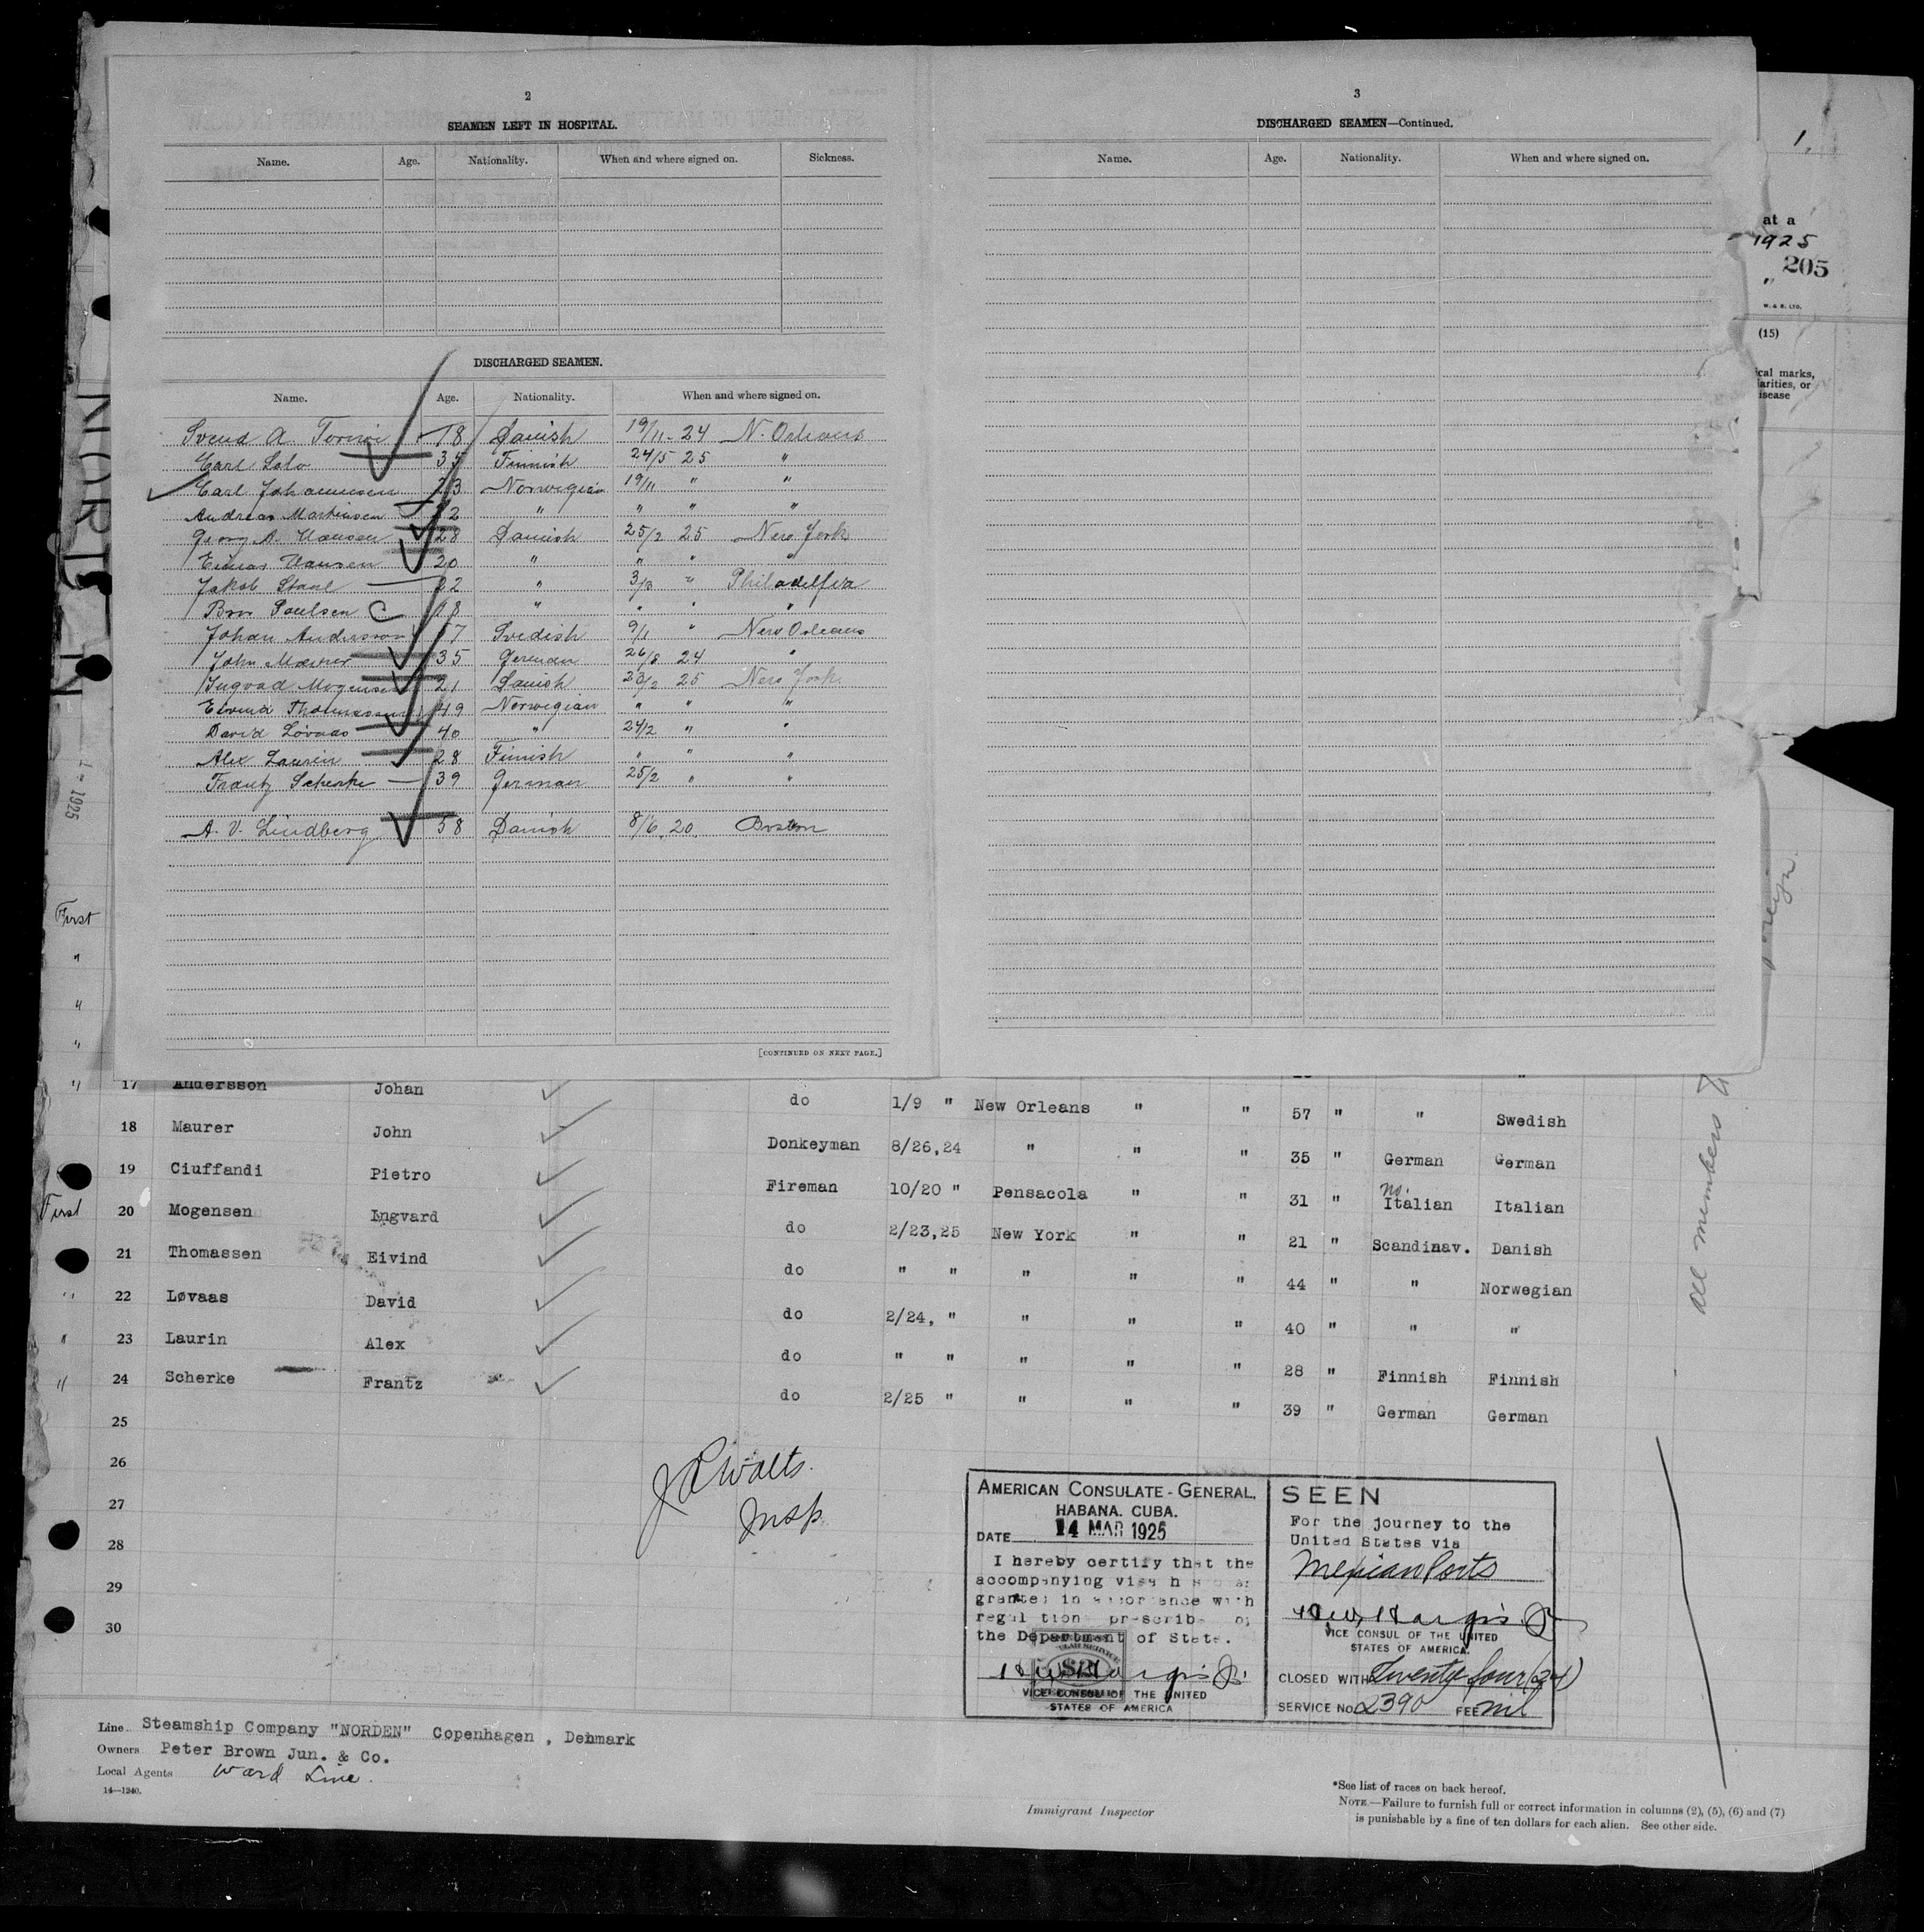 2
SEAMEN LEFT IN HOSPITAL.
Name. Age. Nationality. When and where signed on. Sickness.
DISCHARGED SEAMEN.
Name. Age. Nationality. When and where signed on.
Svend A. 18 Danish 19/11 - 24 N. Orleans
Carl Salo 35 Finnish 24/5 25 "
Carl Johannesen 23 Norwegian 19/11 " "
Andreas Martinsen 22 " " " "
Georg A. Hansen 28 Danish 25/2 25 New York
Einar Hansen 20 " " " "
Jakob Staal 22 " 3/3 " Philadelfia
Poulsen 18 " " " "
Johan Andersson 57 Svedish 9/1 " New Orleans
John Maurer 35 German 26/8 24 "
Ingvad Mogensen 21 Danish 23/2 25 New York
Eivind Thomassen 49 Norwegian " " "
David Løvaas 40 " 24/2 " "
Alex Laurin 28 Finnish " " "
Frantz Scherke 39 German 25/2 " "
A. V. Lindberg 58 Danish 8/6 20. Boston
[CONTINUED ON NEXT PAGE.]
3
DISCHARGED SEAMEN—Continued.
Name. Age. Nationality. When and where signed on.
1.
at a
1925
205
"
W. & S. LTD.
(15)
ical marks,
larities, or
isease
NORDEN
1- 1925
First
"
"
"
" 17 Andersson Johan do 1/9 " New Orleans " " 57 " " Swedish
18 Maurer John Donkeyman 8/26,24 " " " 35 " German German
19 Ciuffandi Pietro Fireman 10/20 " Pensacola " " 31 " no. Italian Italian
First 20 Mogensen Ingvard do 2/23,25 New York " " 21 " Scandinav. Danish
21 Thomassen Eivind do " " " " " 44 " " Norwegian
" 22 Løvaas David do 2/24, " " " " 40 " " "
" 23 Laurin Alex do " " " " " 28 " Finnish Finnish
" 24 Scherke Frantz do 2/25 " " " " 39 " German German
25
26
27
28
29
30
All members
Insp.
AMERICAN CONSULATE-GENERAL,
HABANA, CUBA.
DATE 14 MAR 1925
I hereby certify that the
accompanying visa has
granted in accordance with
regulations prescribed by
the Department of State.
VICE CONSUL OF THE UNITED
STATES OF AMERICA
SEEN
For the journey to the
United States via
Mexican Ports
VICE CONSUL OF THE UNITED
STATES OF AMERICA.
CLOSED WITH Twenty four (24)
SERVICE NO. 2390 FEE nil
Line Steamship Company "NORDEN" Copenhagen, Denmark
Owners Peter Brown Jun. & Co.
Local Agents Ward Line.
14—1240.
Immigrant Inspector
*See list of races on back hereof.
NOTE.—Failure to furnish full or correct information in columns (2), (5), (6) and (7)
is punishable by a fine of ten dollars for each alien. See other side.